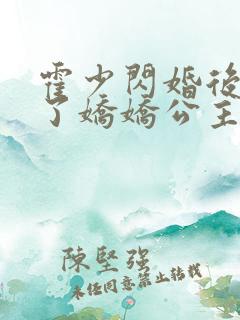 霍少閃婚後
了嬌嬌公主
陳堅強
未経同意禁止転載